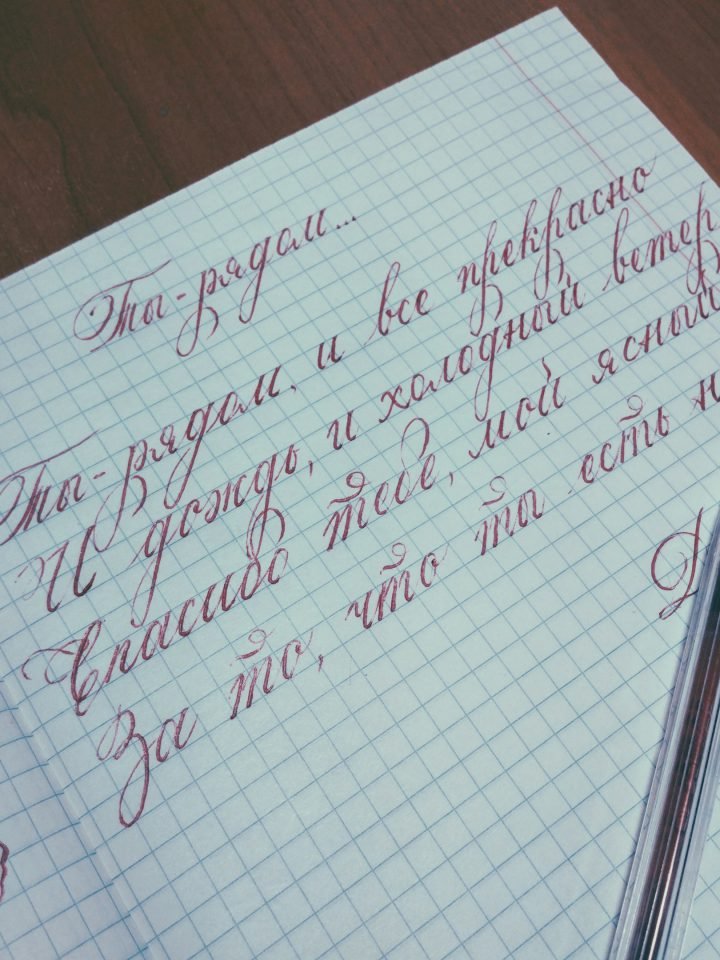 Ты - рядом...
Ты - рядом, и все прекрасно
И дождь, и холодный ветер
Спасибо тебе, мой ясный
За то, что ты есть н
Д